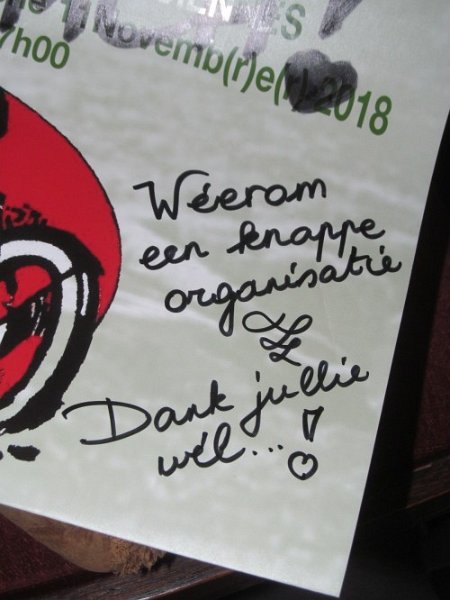 IENNES
1 Novemb(r)e(r) 2018
7h00
Wéerom
een knappe
organisatie
Dank jullie
wél...!